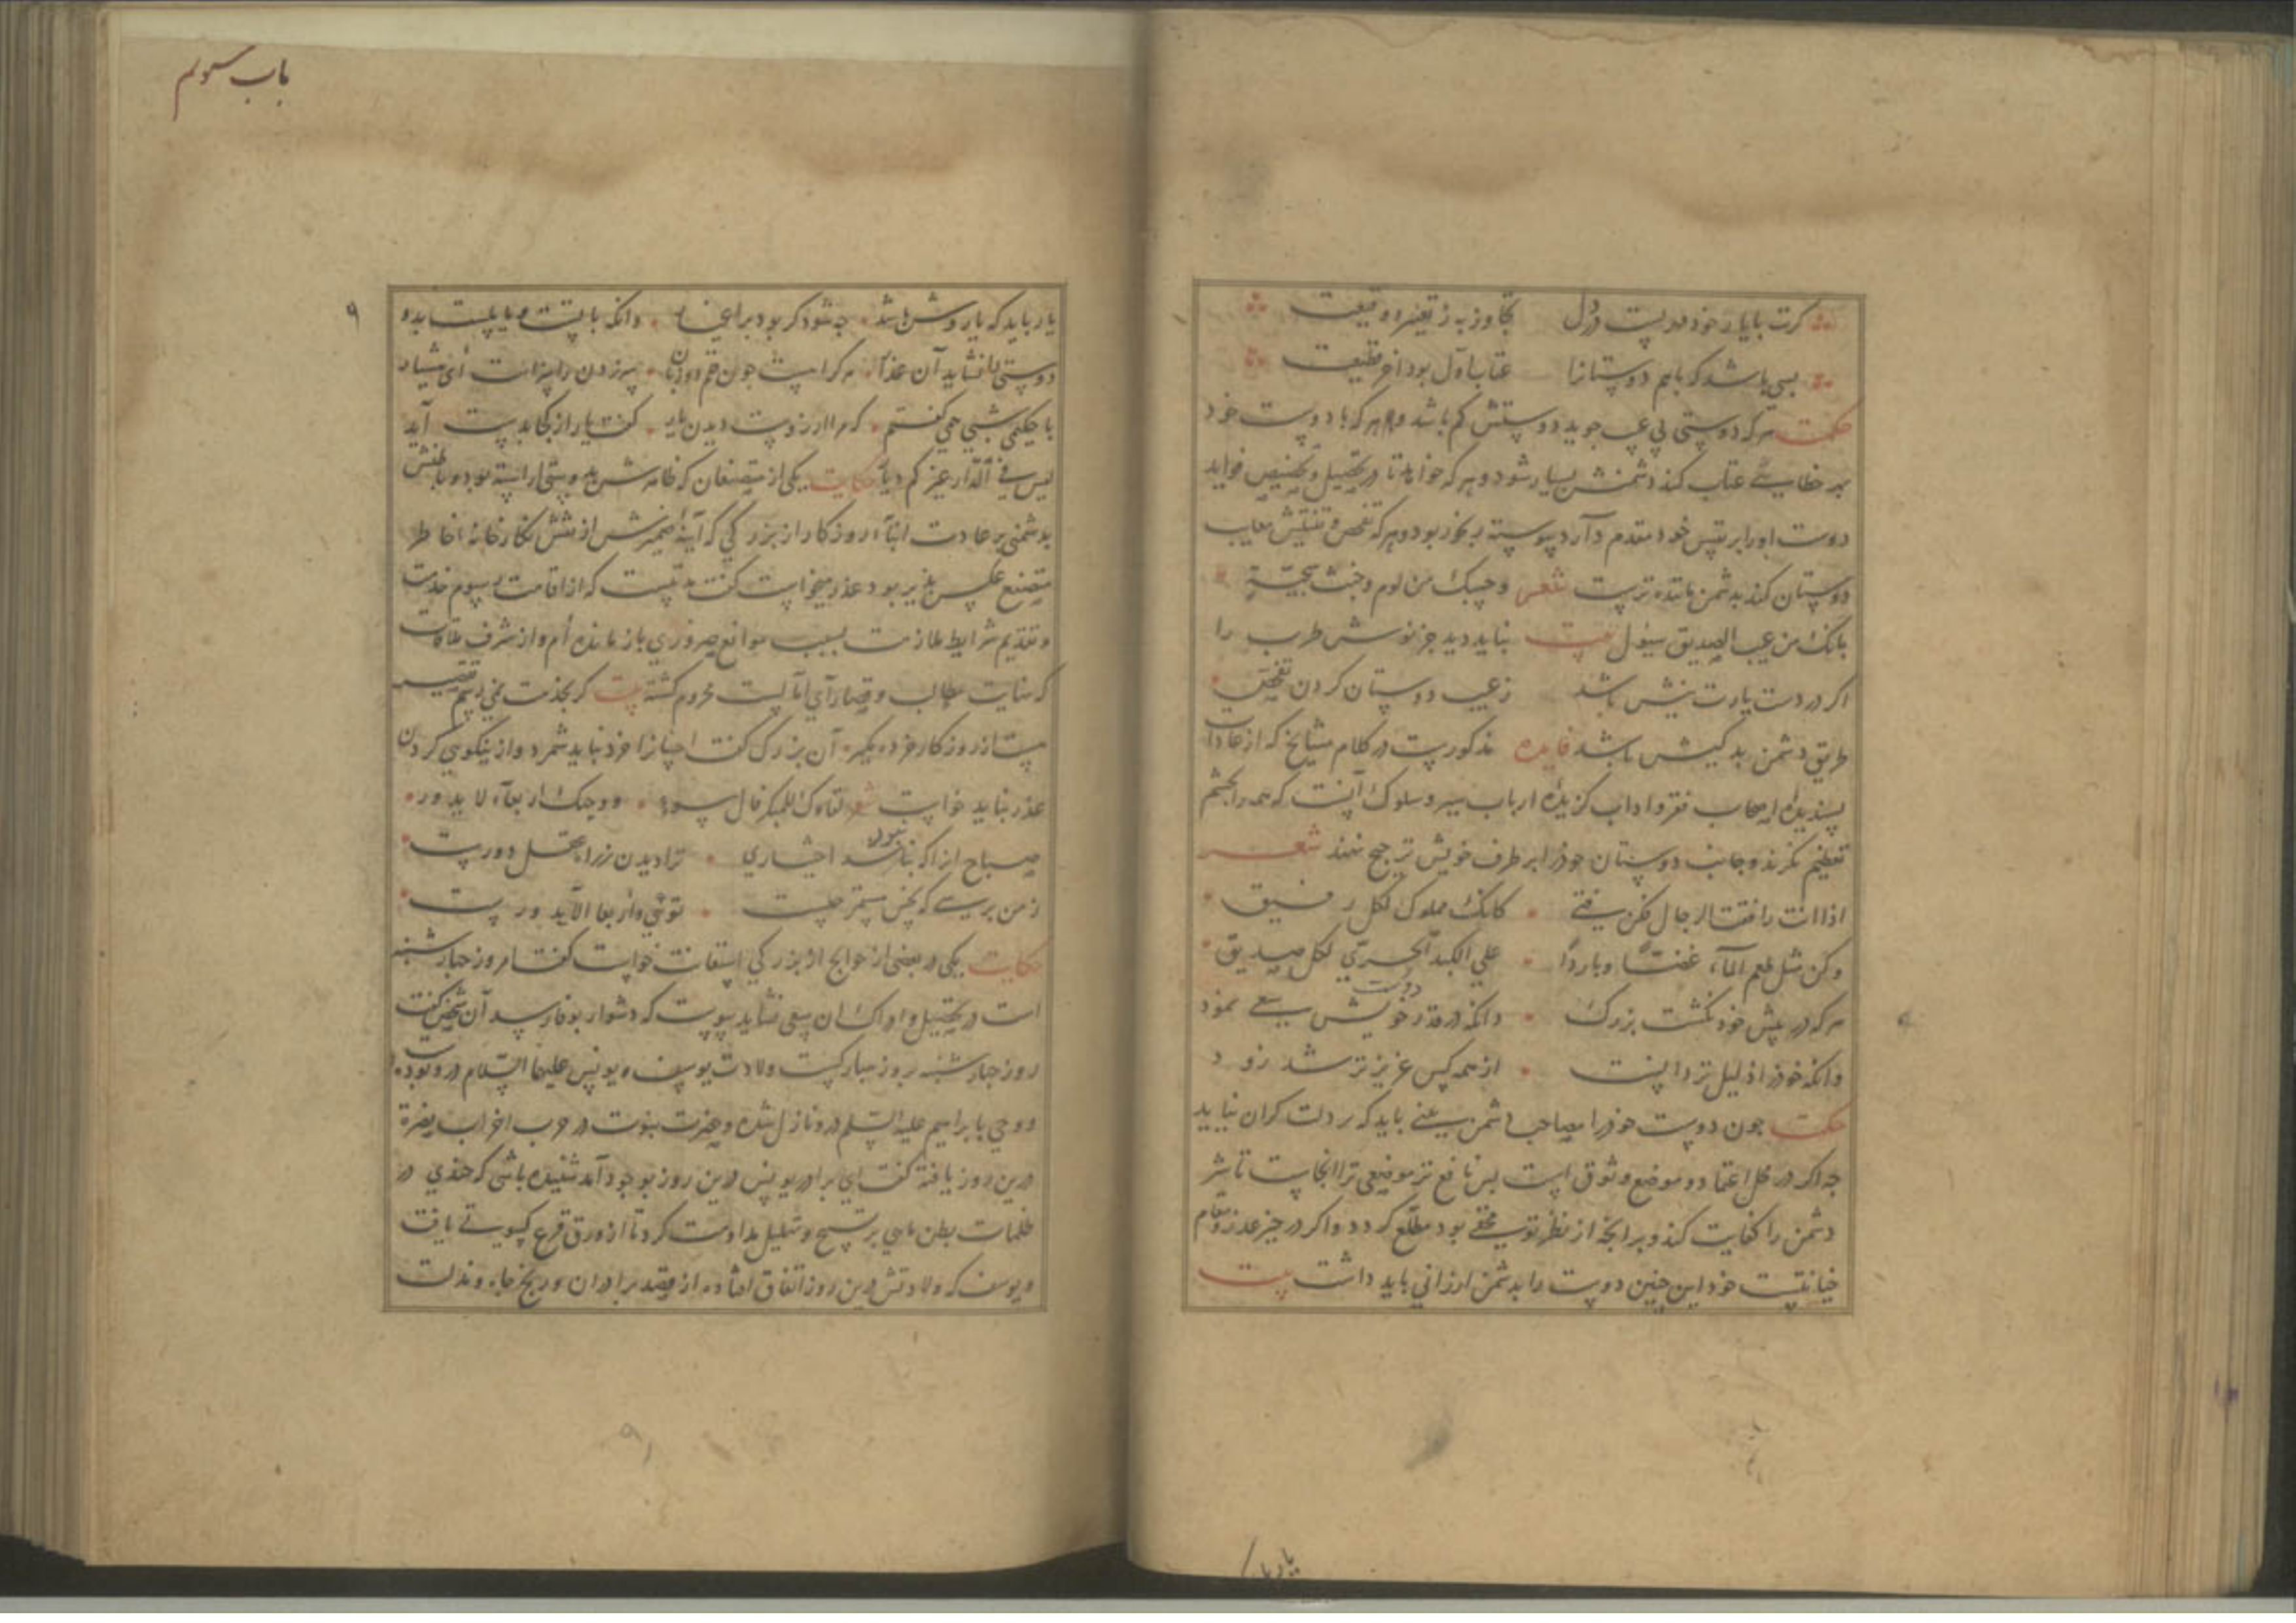 کرت با یار خود مهریست در دل تجاوز به ز تعییر و وقیعت
بسی باشد که باهم دوستانرا عتاب اول بود آخر قطیعت
حکمت هر که دوستی بی عیب جوید دوستش کم باشد و هر که با دوست خود
بهر خطایی عتاب کند دشمنش بسیار شود و هر که خواهد تا در تحصیل و تخصیص فواید
دوست اورا بر نفس خود مقدم دارد پیوسته رنجور بود و هر که تفحص و تفتیش معایب
دوستان کند بدشمن مانده ترست شعر وحسبک من لوم وخبث سجیة
بانک من عیب الصدیق سئول بیت نباید دید جز نوش طرب را
اکر در دست یارت نیش باشد ز عیب دوستان کردن تفحص
طریق دشمن بد کیش باشد فایده مذکورست در کلام مشایخ که از عادات
پسندیده اصحاب فقر و اداب کزیده ارباب سیر و سلوک آنست که همه را بچشم
تعظیم نکرند و جانب دوستان خودرا بر طرف خویش ترجیح نهند شعر
اذا انت رافقت الرجال فکن فتی کانک مملوک لکل رفیق
وکن مثل طعم المآء عذبا وباردا علی الکبد الحری لکل صدیق
هر که در پیش خود نکشت بزرک وانکه در قدر خویش دوست سعی نمود
وانکه خودرا ذلیل تر دانست از همه کس عزیز تر شد زود
حکمت جون دوست خودرا مصاحب دشمن بینی باید که بر دلت کران نیاید
جه اکر در محل اعتماد و موضع وثوق است بس نافع تر موضعی ترا انجاست تا شر
دشمن را کفایت کند و بر انچه از نظر تو مخفی بود مطلع کردد و اکر در حیز عذر و مقام
خیانتست خود این چنین دوست را بدشمن ارزانی باید داشت بیت
پار با
باب سوم
یار باید که یار وش باشد جه شود کر بود بر اغیار وانکه با تست و با پلست بدو
دوستی را نشاید آن غدار هر کراهست چون قلم دو زبان سر زدن را سزاست ای هشیار
با حکیمی شبی همی کفتم که مرا ارزوست دیدن یار کفت یار از کجا بدست آید
لیس فی الدار غیرکم دیار حکایت یکی از متصنعان که ظاهرش بدوستی اراسته بود و باطنش
بدشمنی بر عادت ابنآء روزکار از بزرکی که آینه ضمیرش از نقش نکارخانه خاطر
متصنع عکس پذیر بود عذر میخواست کفت مدتیست که از اقامت رسوم خدمت
و تقدیم شرایط ملازمت بسبب موانع ضروری باز مانده ام و از شرف ملاقات
که نهایت مطالب و قصارای امالست محروم کشته بیت کر بخدمت نمی رسم تقصیر
هست از روزکار خرده مکیر آن بزرک کفت احیانرا خرد نباید شمرد و از نیکویی کردن
عذر نباید خواست شعر لقاوک للمبکر فال سوء ووجهک اربعآء لا یدور
صباح از اکه نبود باشد اختیاری ترا دیدن ز راه عقل دورست
ز من پرسی که نحس مستمر چیست تویی و اربعا الا یدورست
حکایت یکی در بعضی از حوایج از بزرکی استعانت خواست کفت امروز چهارشنبه
است در تحصیل و ادراک ان سعی نشاید پیوست که دشوار بوفا رسد آن شخص کفت
روز چهارشنبه روز مبارکیست ولادت یوسف و یونس علیهما السلام درو بوده
ووحی بابراهیم علیه السلم درو نازل شده و حضرت نبوت در حرب احزاب نصرة
درین روز یافته کفت ای برادر یونس درین روز بوجود آمد شنیده باشی که چندی در
ظلمات بطن ماهی بر تسبیح و تهلیل مداومت کرد تا از ورق قرع کسوتی یافت
و یوسف که ولادتش درین روز اتفاق افتاده از قصد برادران و رنج چاه و مذلت